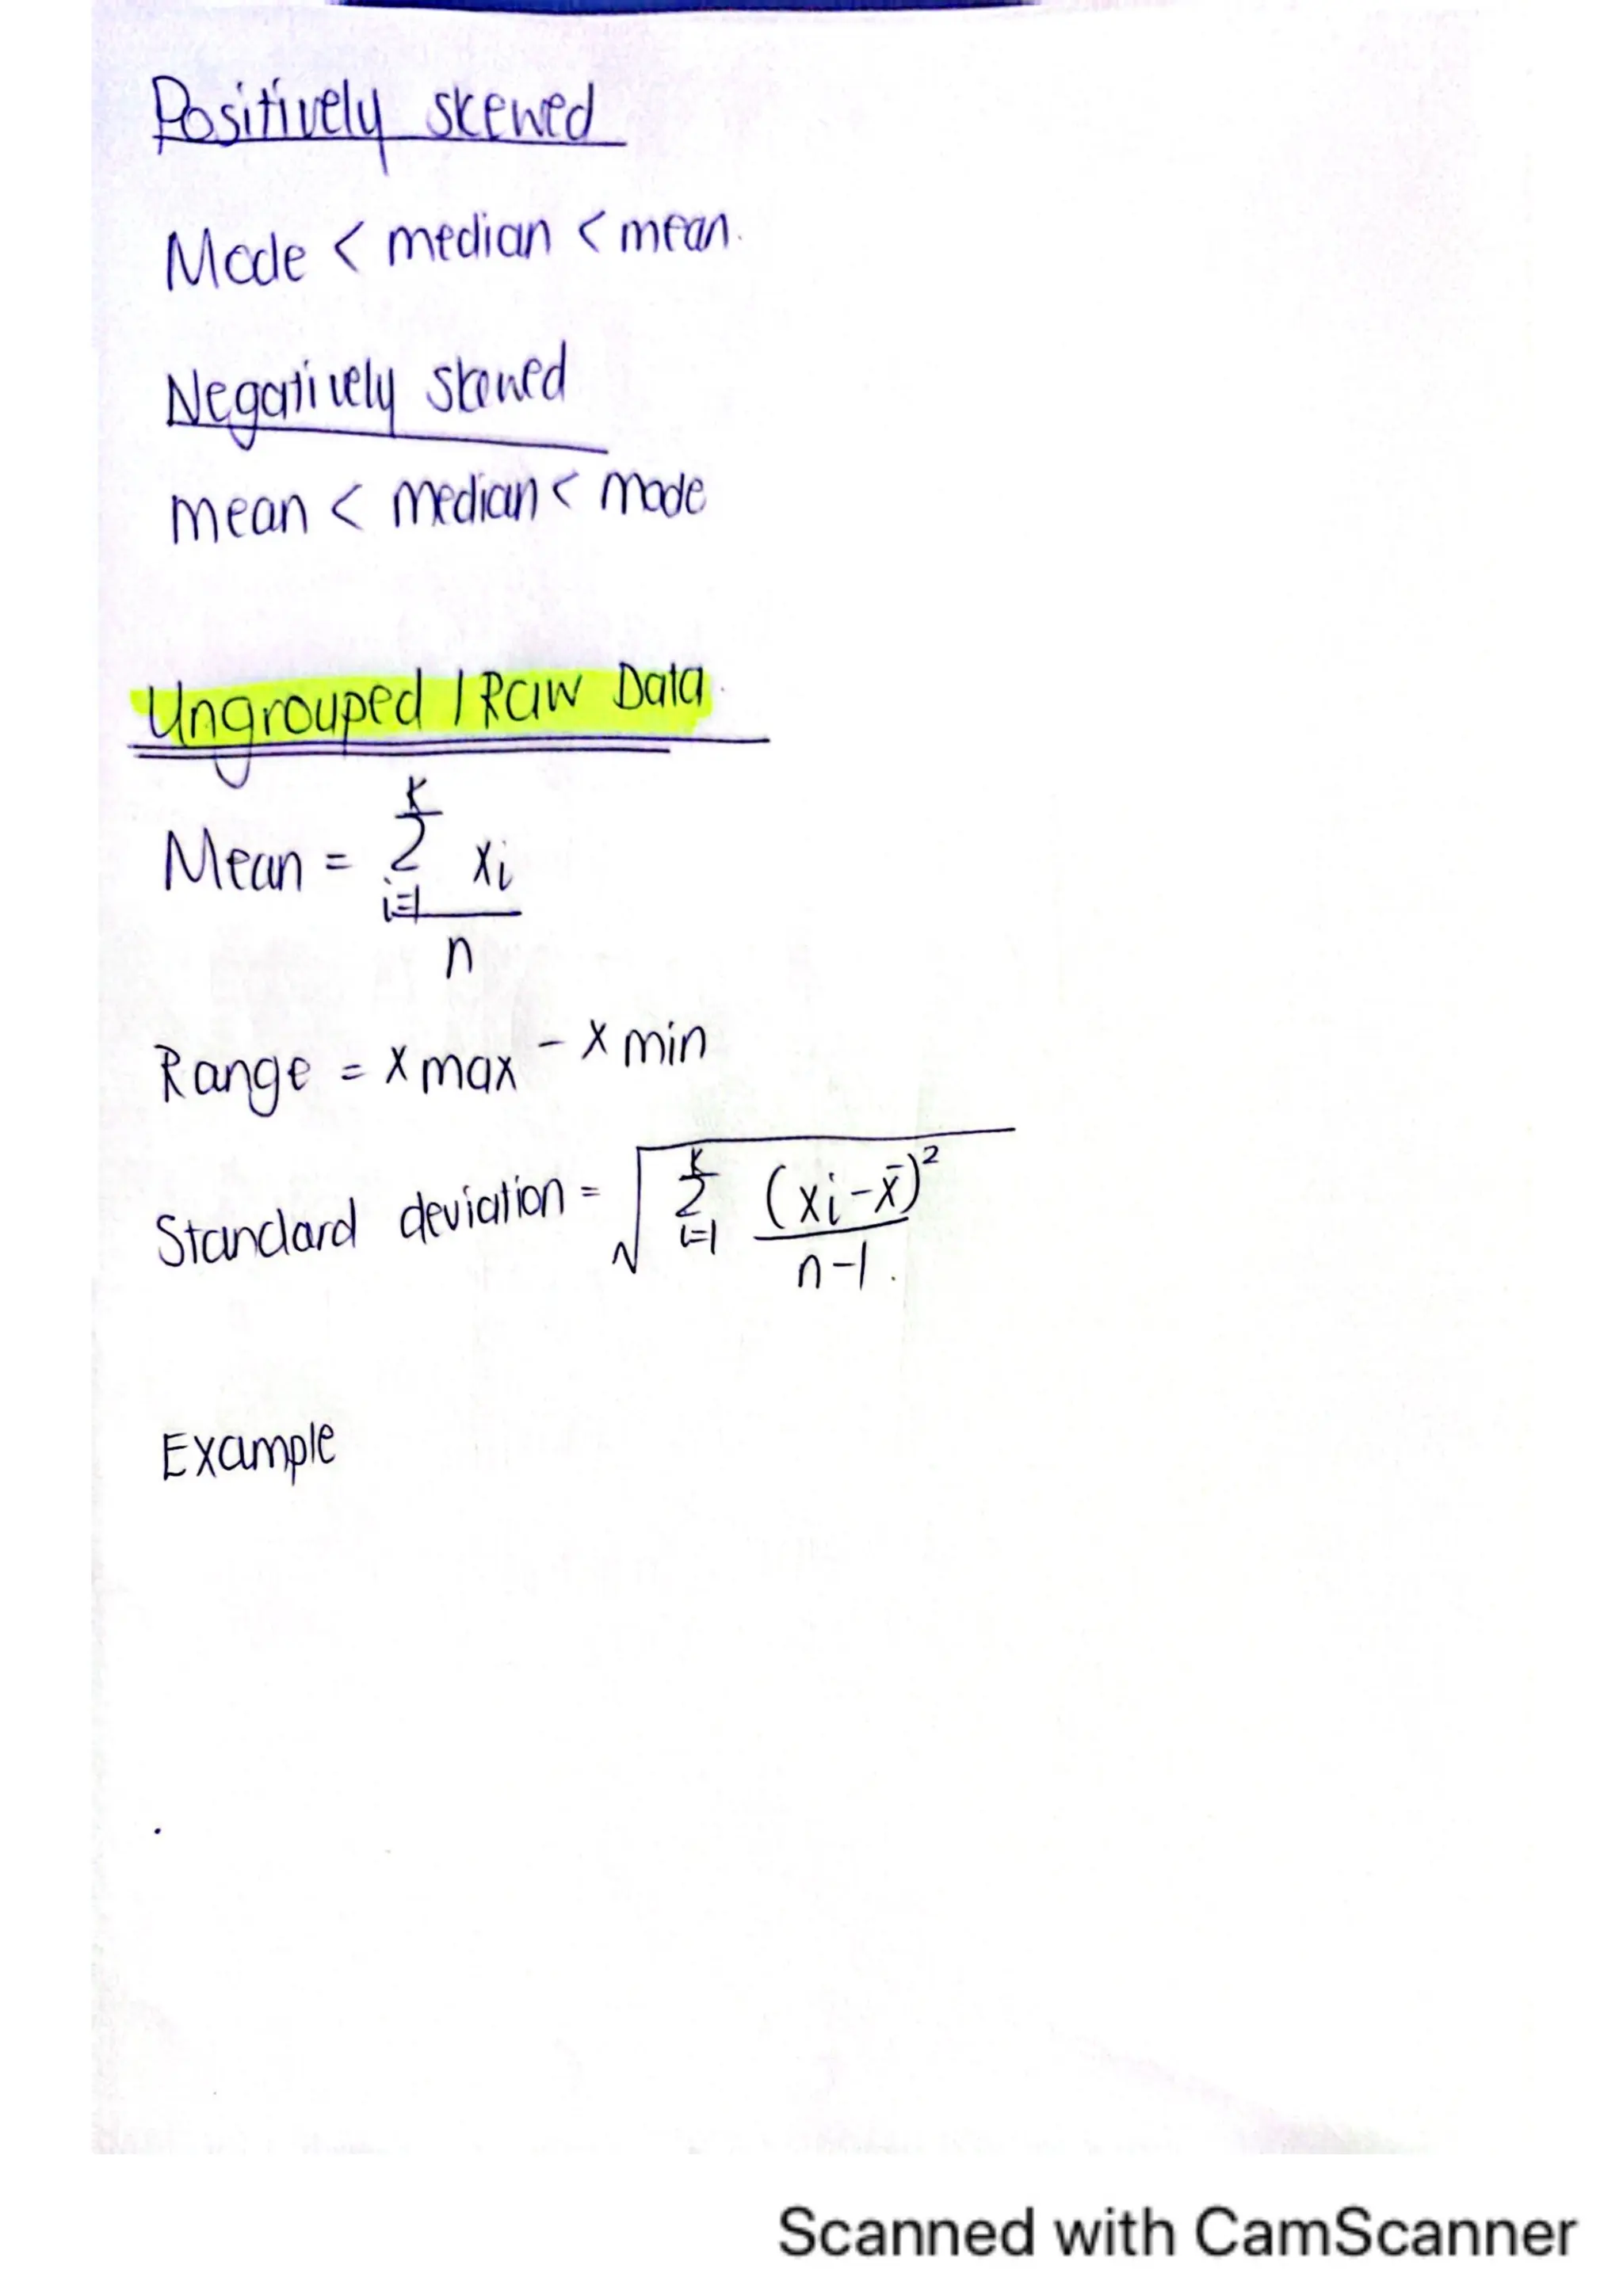 Positively skewed
Mode < median < mean.
Negatively skewed
mean < median < mode
Ungrouped / Raw Data.
Mean = k Σ i=1 xi / n
Range = x max - x min
Standard deviation = √ k Σ i=1 (xi - x̄)² / n-1.
Example
Scanned with CamScanner